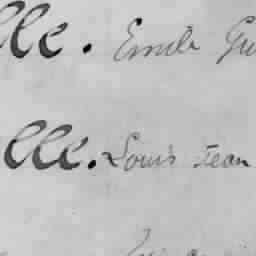 lle. Emile Gu
lle. Louis Jean